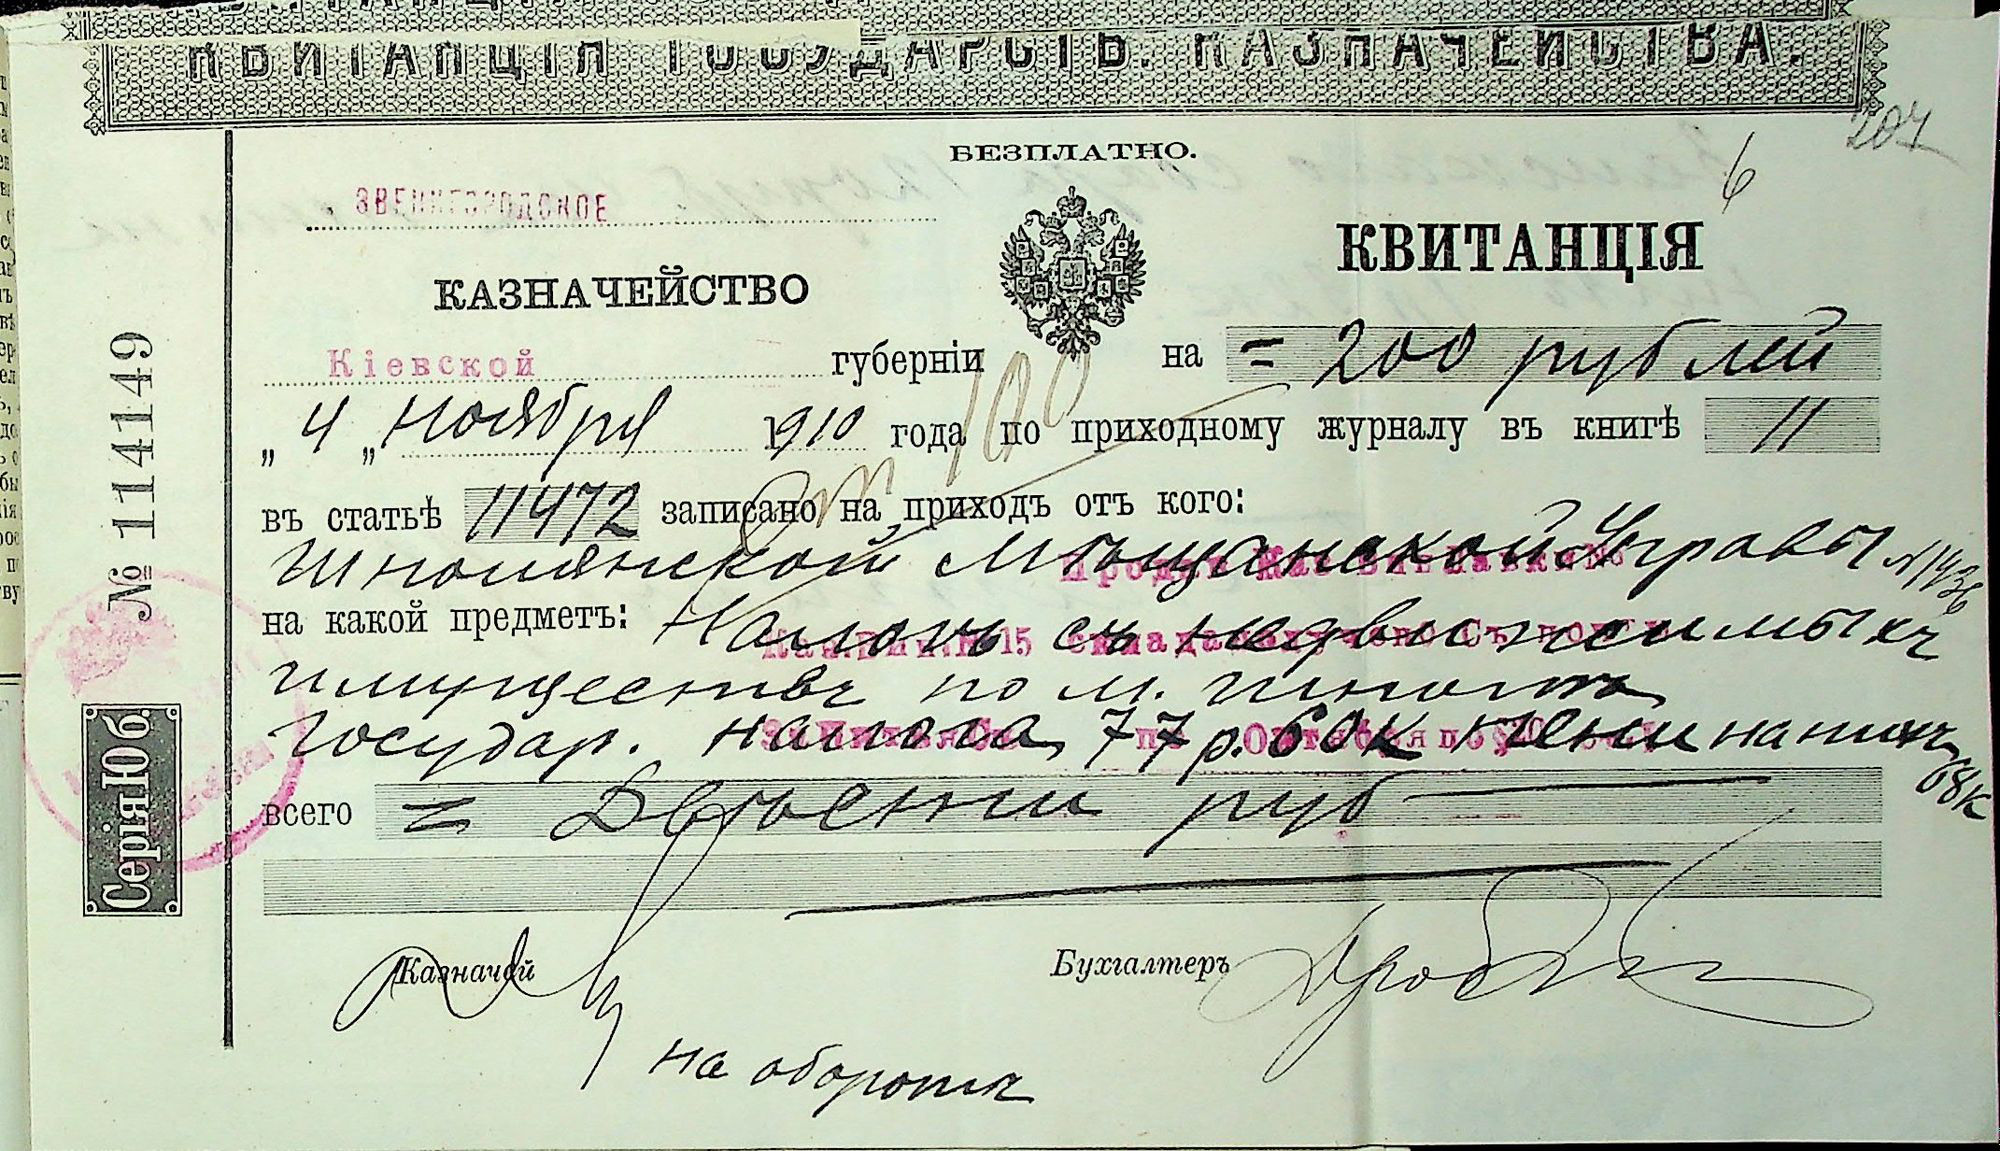 КВИТАНЦІЯ ГОСУДАРСТВ. КАЗНАЧЕЙСТВА.
207
БЕЗПЛАТНО.
6
ЗВЕНИГОРОДСКОЕ
КВИТАНЦІЯ
КАЗНАЧЕЙСТВО
Кіевской губерніи на = 200 рублей
100
„4„ ноября 1910 года по приходному журналу въ книгѣ 11
въ статьѣ 11472 записано на приходъ отъ кого:
Шполянской Мѣщанской Управы № 1436
на какой предметъ: Налогъ съ недвижимыхъ
имуществъ по м. Шполѣ
государ. налога 77 р. 60 к пени на нихъ 68 к
всего = Двѣсти руб
Казначей
Бухгалтеръ
на оборотѣ
№ 114149
Серія Юб.